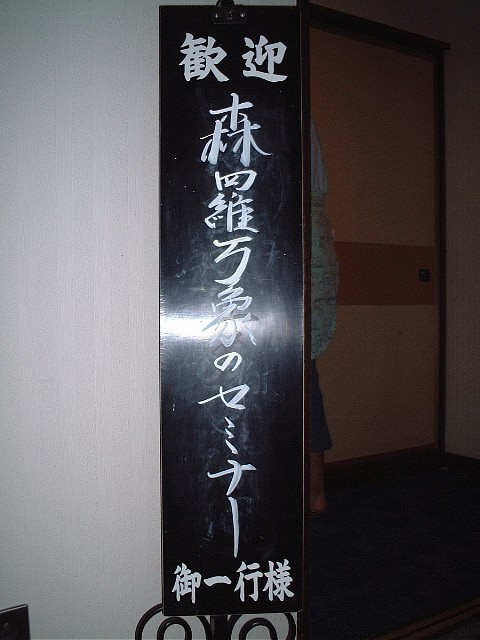 歓迎
森羅万象のセミナー
御一行様